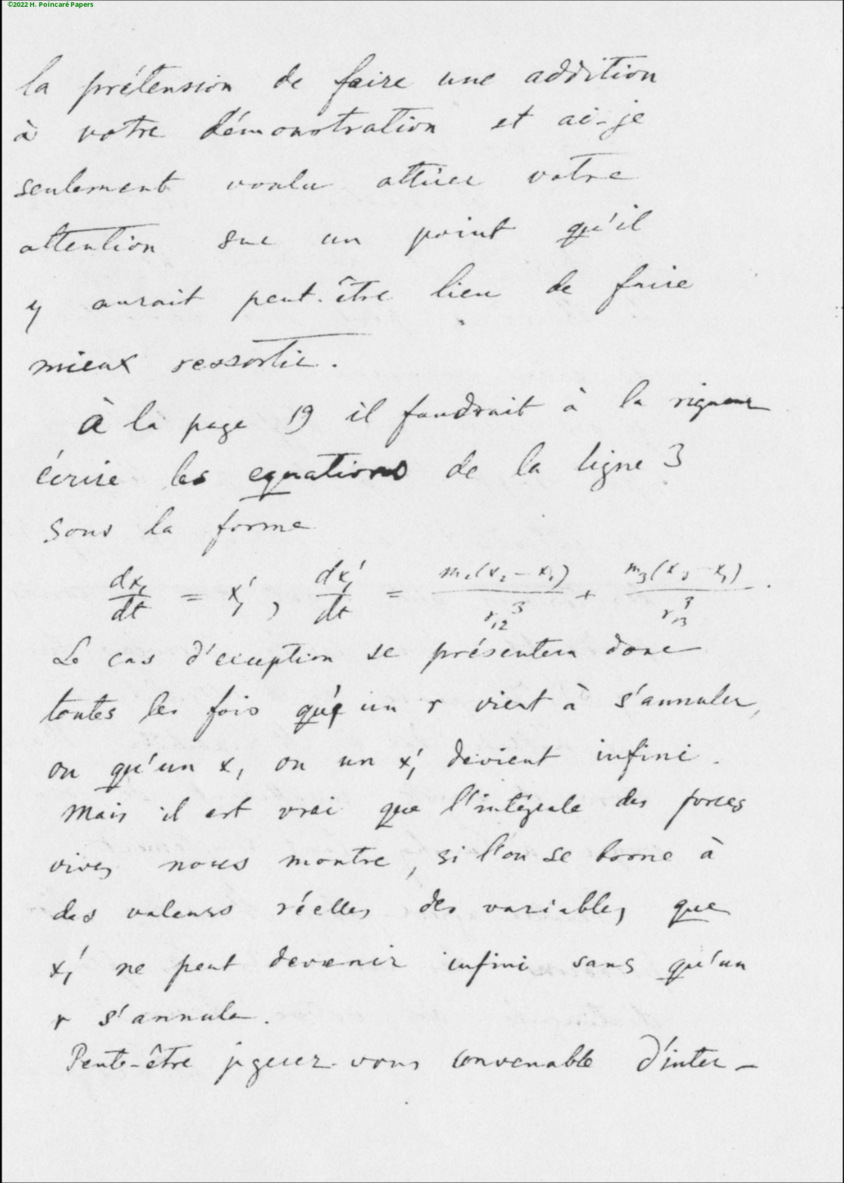 ©2022 H. Poincaré Papers
la prétension de faire une addition
à votre démonstration et ai-je
seulement voulu attirer votre
attention sur un point qu'il
y aurait peut-être lieu de faire
mieux ressortir.
À la page 19 il faudrait à la rigueur
écrire les equations de la ligne 3
sous la forme
dx₁/dt = x₁', dx₁'/dt = m₂(x₂ - x₁)/r₁₂³ + m₃(x₃ - x₁)/r₁₃³.
Le cas d'exception se présentera donc
toutes les fois qu'un r vient à s'annuler,
ou qu'un x₁ ou un x₁' devient infini.
Mais il est vrai que l'intégrale des forces
vives nous montre, si l'on se borne à
des valeurs réelles des variables, que
x₁' ne peut devenir infini sans qu'un
r s'annule.
Peut-être jugerez-vous convenable d'inter-